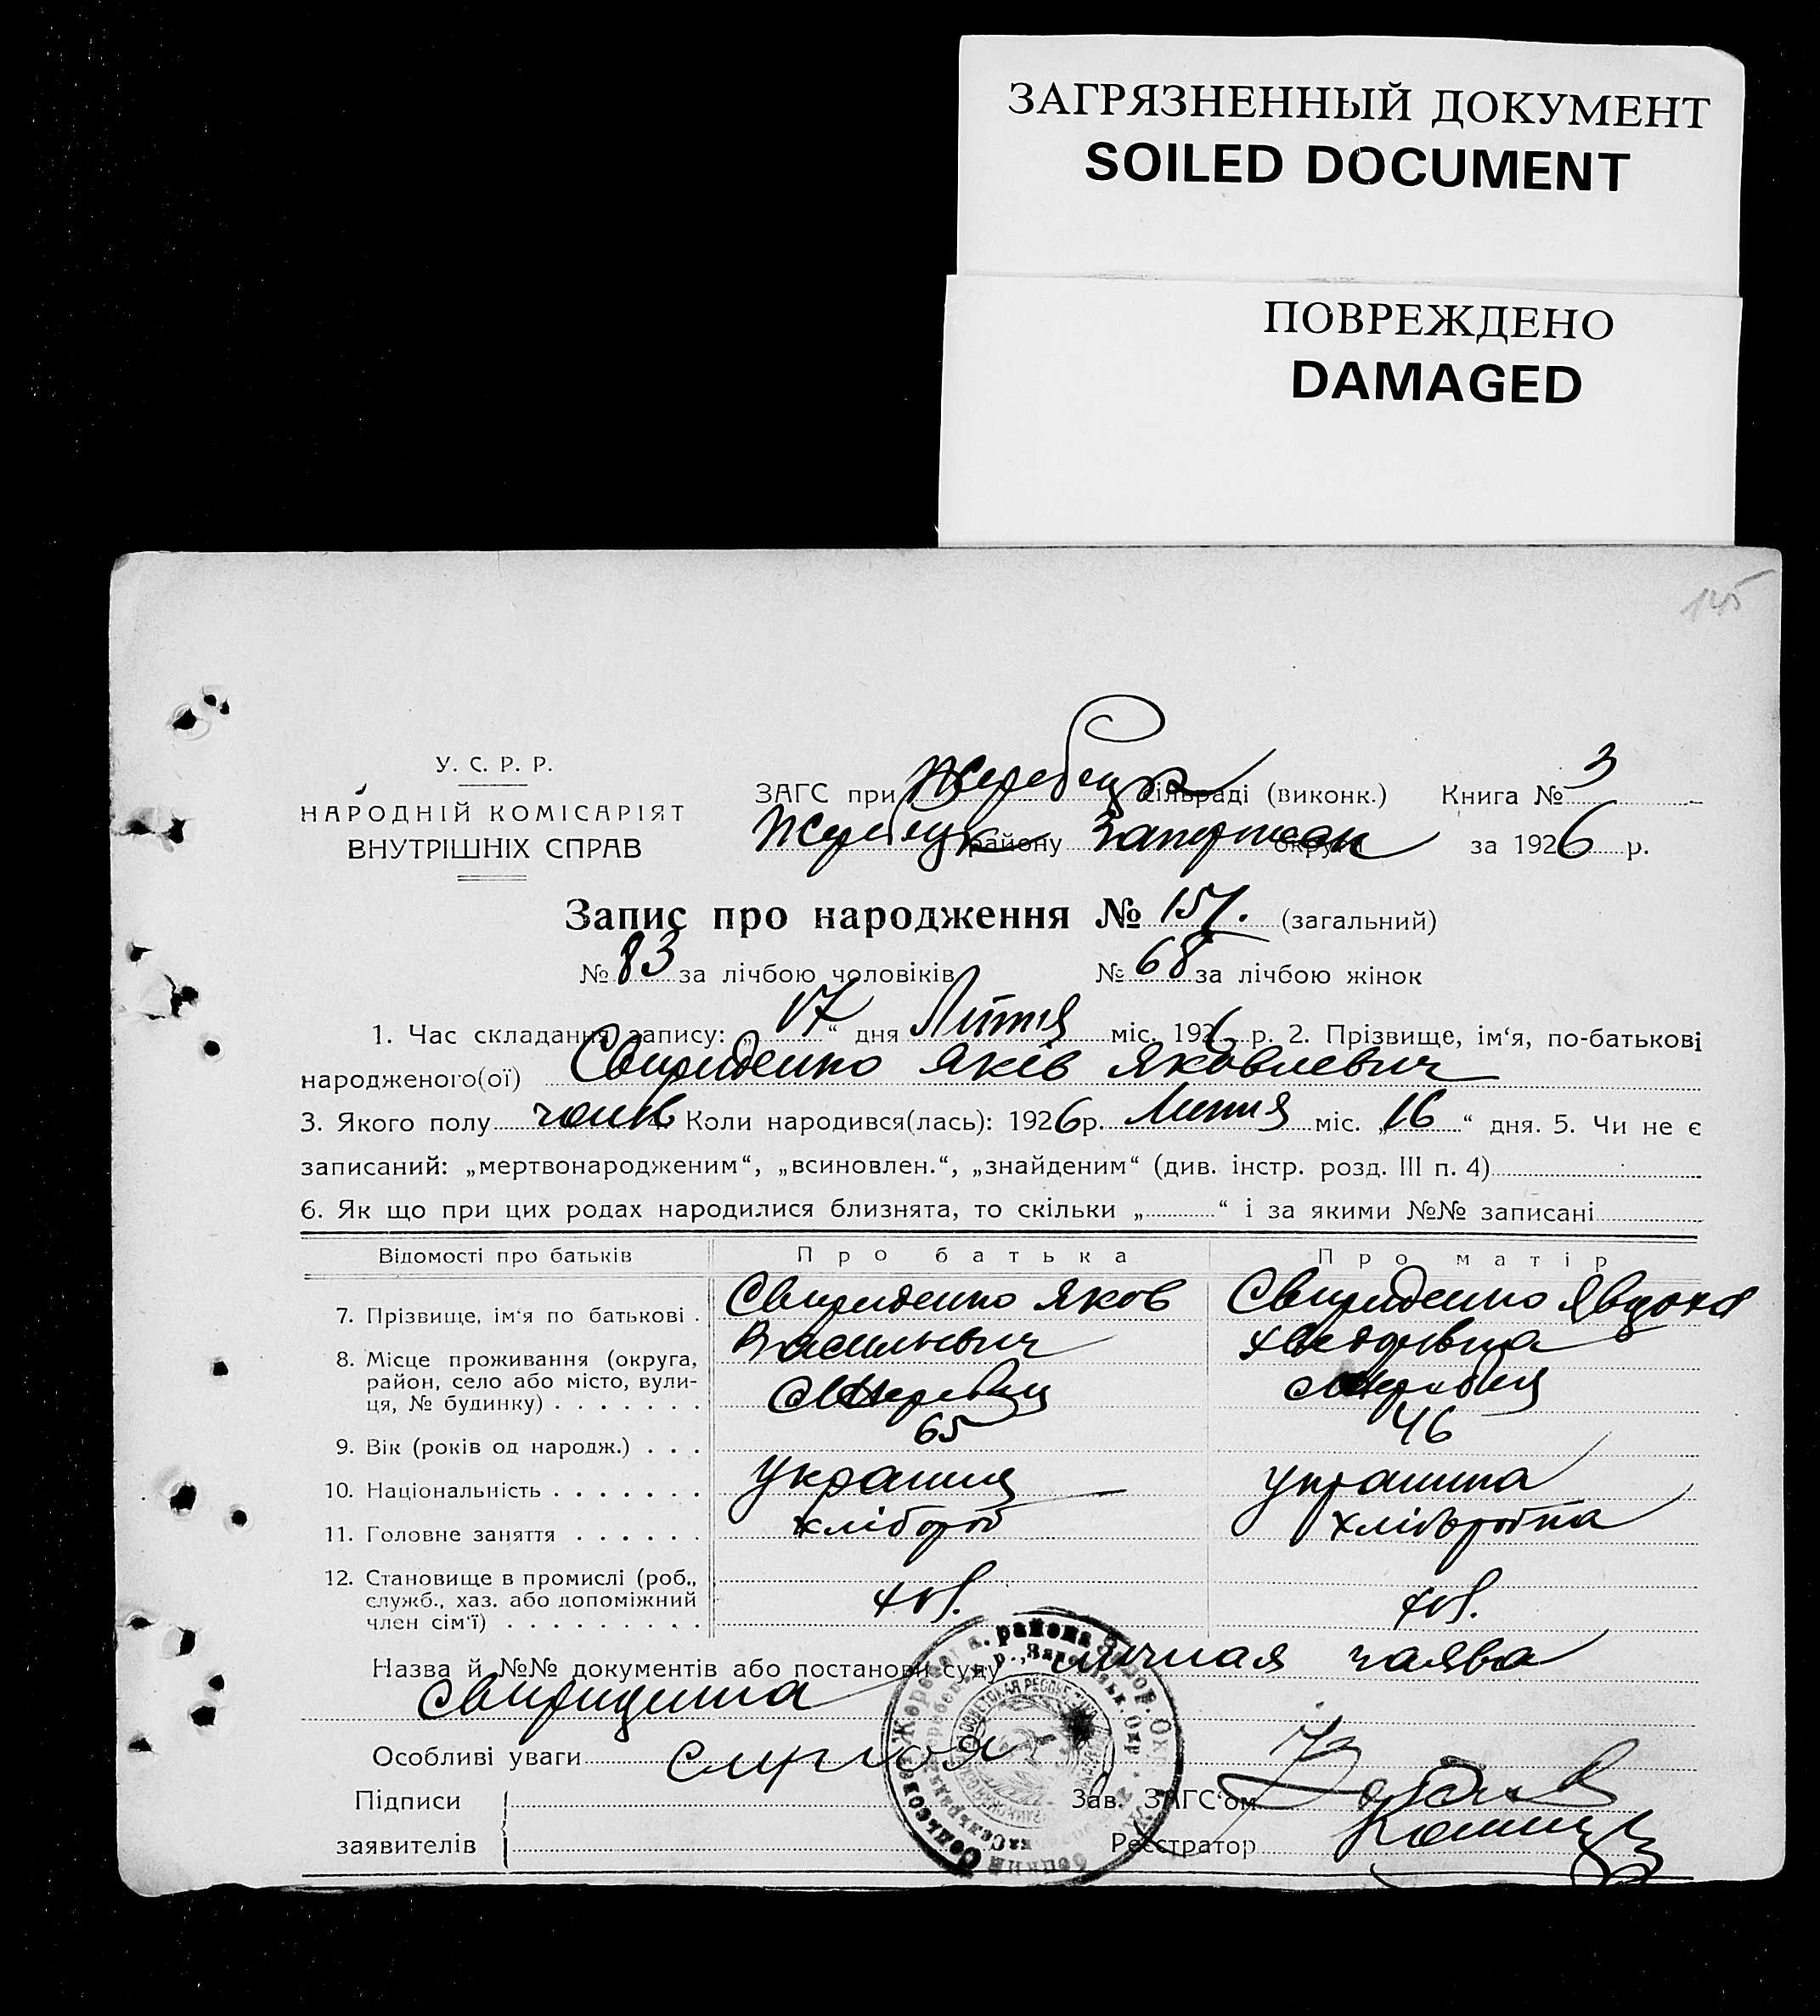 ЗАГРЯЗНЕННЫЙ ДОКУМЕНТ
SOILED DOCUMENT
ПОВРЕЖДЕНО
DAMAGED
145
У. С. Р. Р.
НАРОДНІЙ КОМІСАРІЯТ
ВНУТРІШНІХ СПРАВ
ЗАГС при Жеребецк сільраді (виконк.) Книга № 3
Жеребецк району Запорожск округи за 1926 р.
Запис про народження № 151. (загальний)
№ 83 за лічбою чоловіків № 68 за лічбою жінок
1. Час складання запису: „17“ дня Липня міс. 1926 р. 2. Прізвище, ім‘я, по-батькові
народженого(ої) Свириденко Яків Яковлевич
3. Якого полу чолів 4. Коли народився(лась): 1926 р. Липня міс. „16“ дня. 5. Чи не є
записаний: „мертвонародженим“, „всиновлен.“, „знайденим“ (див. інстр. розд. III п. 4)
6. Як що при цих родах народилися близнята, то скільки „ “ і за якими №№ записані
Відомості про батьків Про батька Про матір
7. Прізвище, ім‘я по батькові . Свириденко Яков Васильевич Свириденко Явдоха
8. Місце проживання (округа, район, село або місто, вулиця, № будинку) . . . . . . . с Жеребец с Жеребец
9. Вік (років од народж.) . . . 65 46
10. Національність . . . . . . . Украинец Украинка
11. Головне заняття . . . . . . хлібороб хліборобка
12. Становище в промислі (роб., служб., хаз. або допоміжний член сім‘ї) . . . . . . . . .
Назва й №№ документів або постанови суду личная заява
Особливі уваги
Підписи
заявителів
Зав. ЗАГС‘ом
Реєстратор